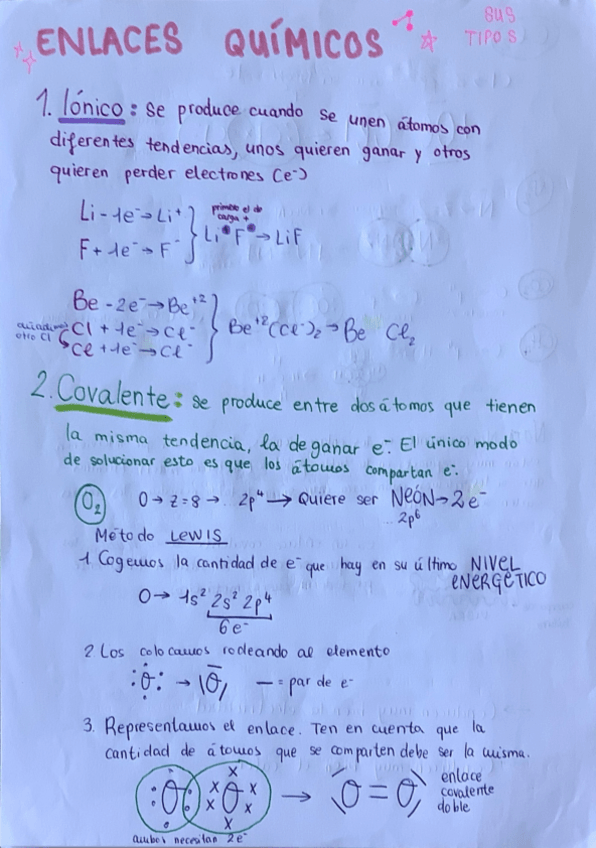 ENLACES QUÍMICOS
SUS
TIPOS
1. Iónico: Se produce cuando se unen átomos con
diferentes tendencias, unos quieren ganar y otros
quieren perder electrones (e⁻)
Li - 1e⁻ → Li⁺
F + 1e⁻ → F⁻
primero el de
carga +
Li F → LiF
Be - 2e⁻ → Be⁺²
Cl + 1e⁻ → Cl⁻
otro Cl
Cl + 1e⁻ → Cl⁻
Be⁺²(Cl⁻)₂ → Be Cl₂
2. Covalente: se produce entre dos átomos que tienen
la misma tendencia, la de ganar e⁻. El único modo
de solucionar esto es que los átomos compartan e⁻.
O₂ O → z = 8 → 2p⁴ → Quiere ser NEÓN → 2e⁻
2p⁶
Método LEWIS
1 Cogemos la cantidad de e⁻ que hay en su último NIVEL
ENERGÉTICO
O → 1s² 2s² 2p⁴
6e⁻
2 Los colocamos rodeando al elemento
:Ö: → |O| — = par de e⁻
3. Representamos el enlace. Ten en cuenta que la
cantidad de átomos que se comparten debe ser la misma.
O x x O x x x x → O = O
enlace
covalente
doble
ambos necesitan 2e⁻